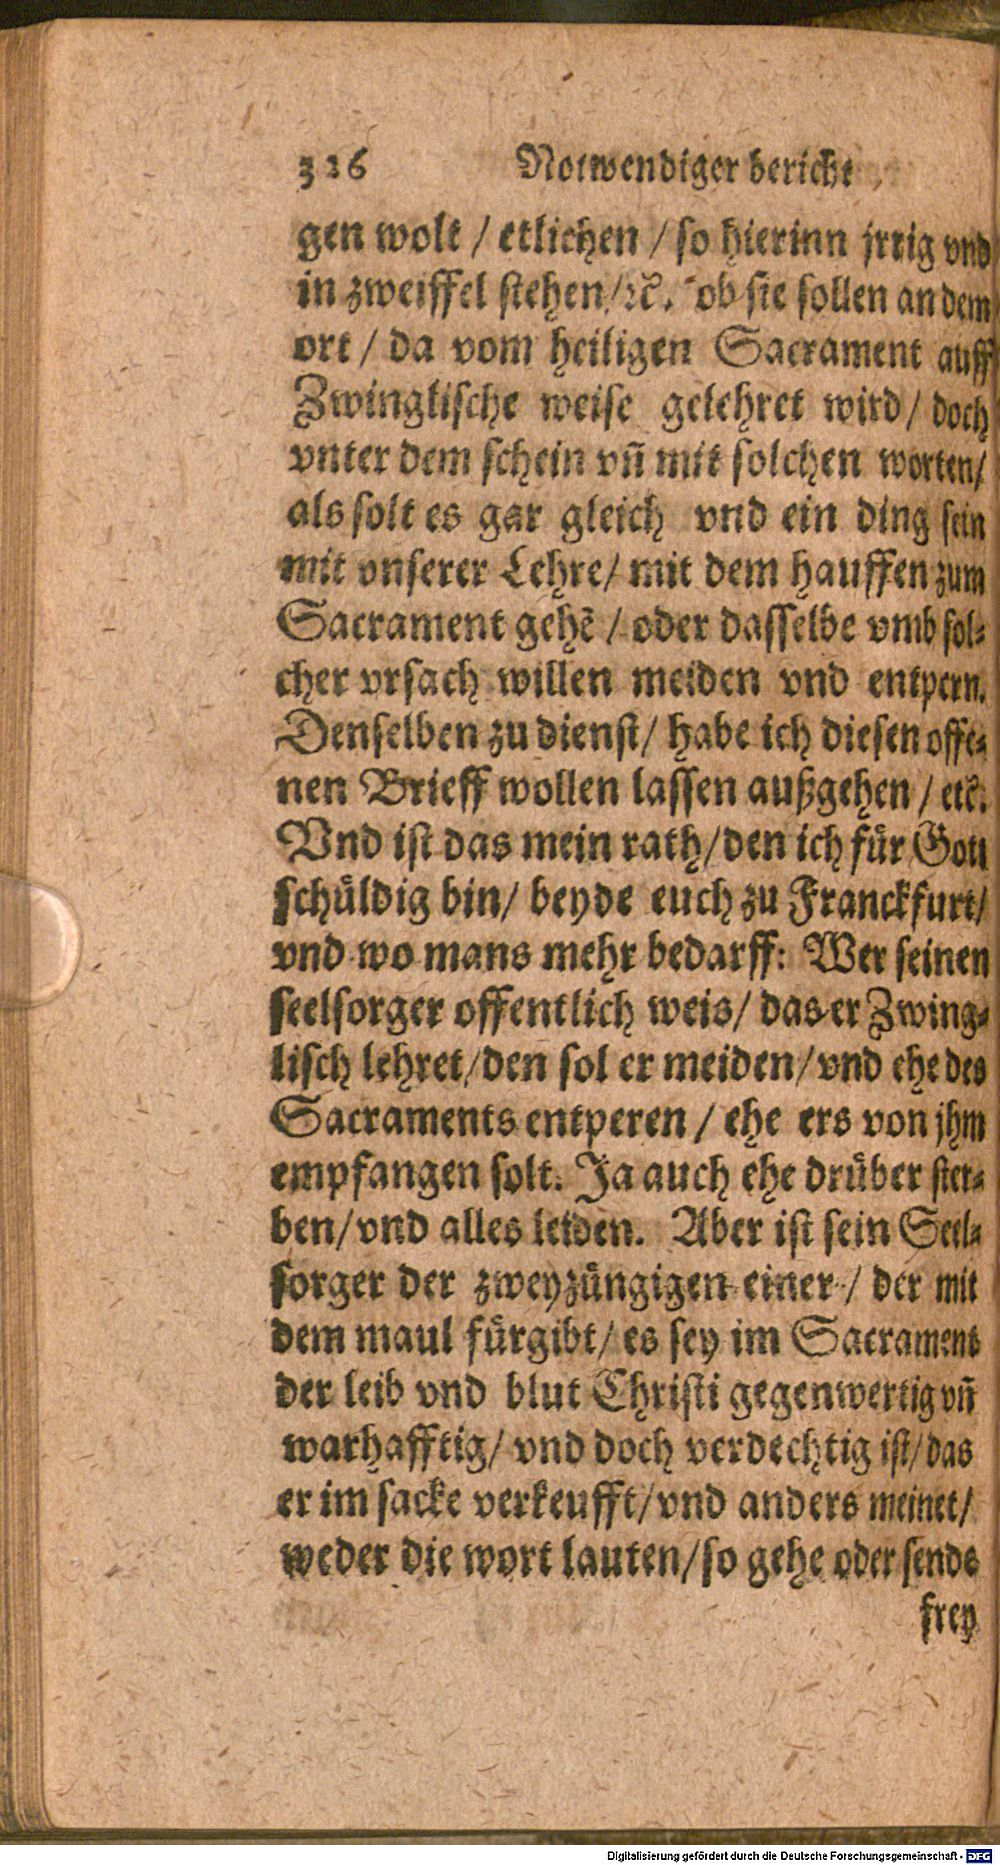 326 Notwendiger bericht
gen wolt / etlichen / so hierinn jrrig vnd
in zweiffel stehen / ꝛc. ob sie sollen an dem
ort / da vom heiligen Sacrament auff
Zwinglische weise gelehret wird / doch
vnter dem schein vn̄ mit solchen worten /
als solt es gar gleich vnd ein ding sein
mit vnserer Lehre / mit dem hauffen zum
Sacrament gehē / oder dasselbe vmb sol⸗
cher vrsach willen meiden vnd entpern.
Denselben zu dienst / habe ich diesen offe⸗
nen Brieff wollen lassen außgehen / etc.
Vnd ist das mein rath / den ich fuͤr Gott
schuͤldig bin / beyde euch zu Franckfurt /
vnd wo mans mehr bedarff: Wer seinen
seelsorger offentlich weis / das er Zwing⸗
lisch lehret / den sol er meiden / vnd ehe des
Sacraments entperen / ehe ers von jhm
empfangen solt. Ja auch ehe druͤber ster⸗
ben / vnd alles leiden. Aber ist sein Seel⸗
sorger der zweyzuͤngigen einer / der mit
dem maul fuͤrgibt / es sey im Sacrament
der leib vnd blut Christi gegenwertig vn̄
warhafftig / vnd doch verdechtig ist / das
er im sacke verkeufft / vnd anders meinet /
weder die wort lauten / so gehe oder sende
frey
Digitalisierung gefördert durch die Deutsche Forschungsgemeinschaft - DFG